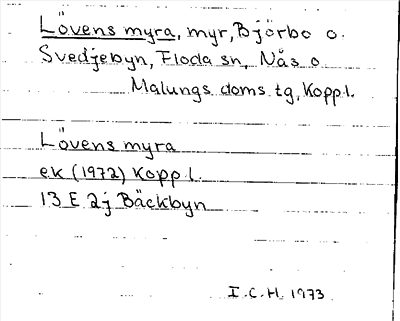 Lövens myra, myr, Björbo o.
Svedjebyn, Floda sn, Nås o
Malungs doms. tg, Kopp l.
Lövens myra
ek (1972) Kopp l.
13 E 2j Bäckbyn
I.C.H. 1973